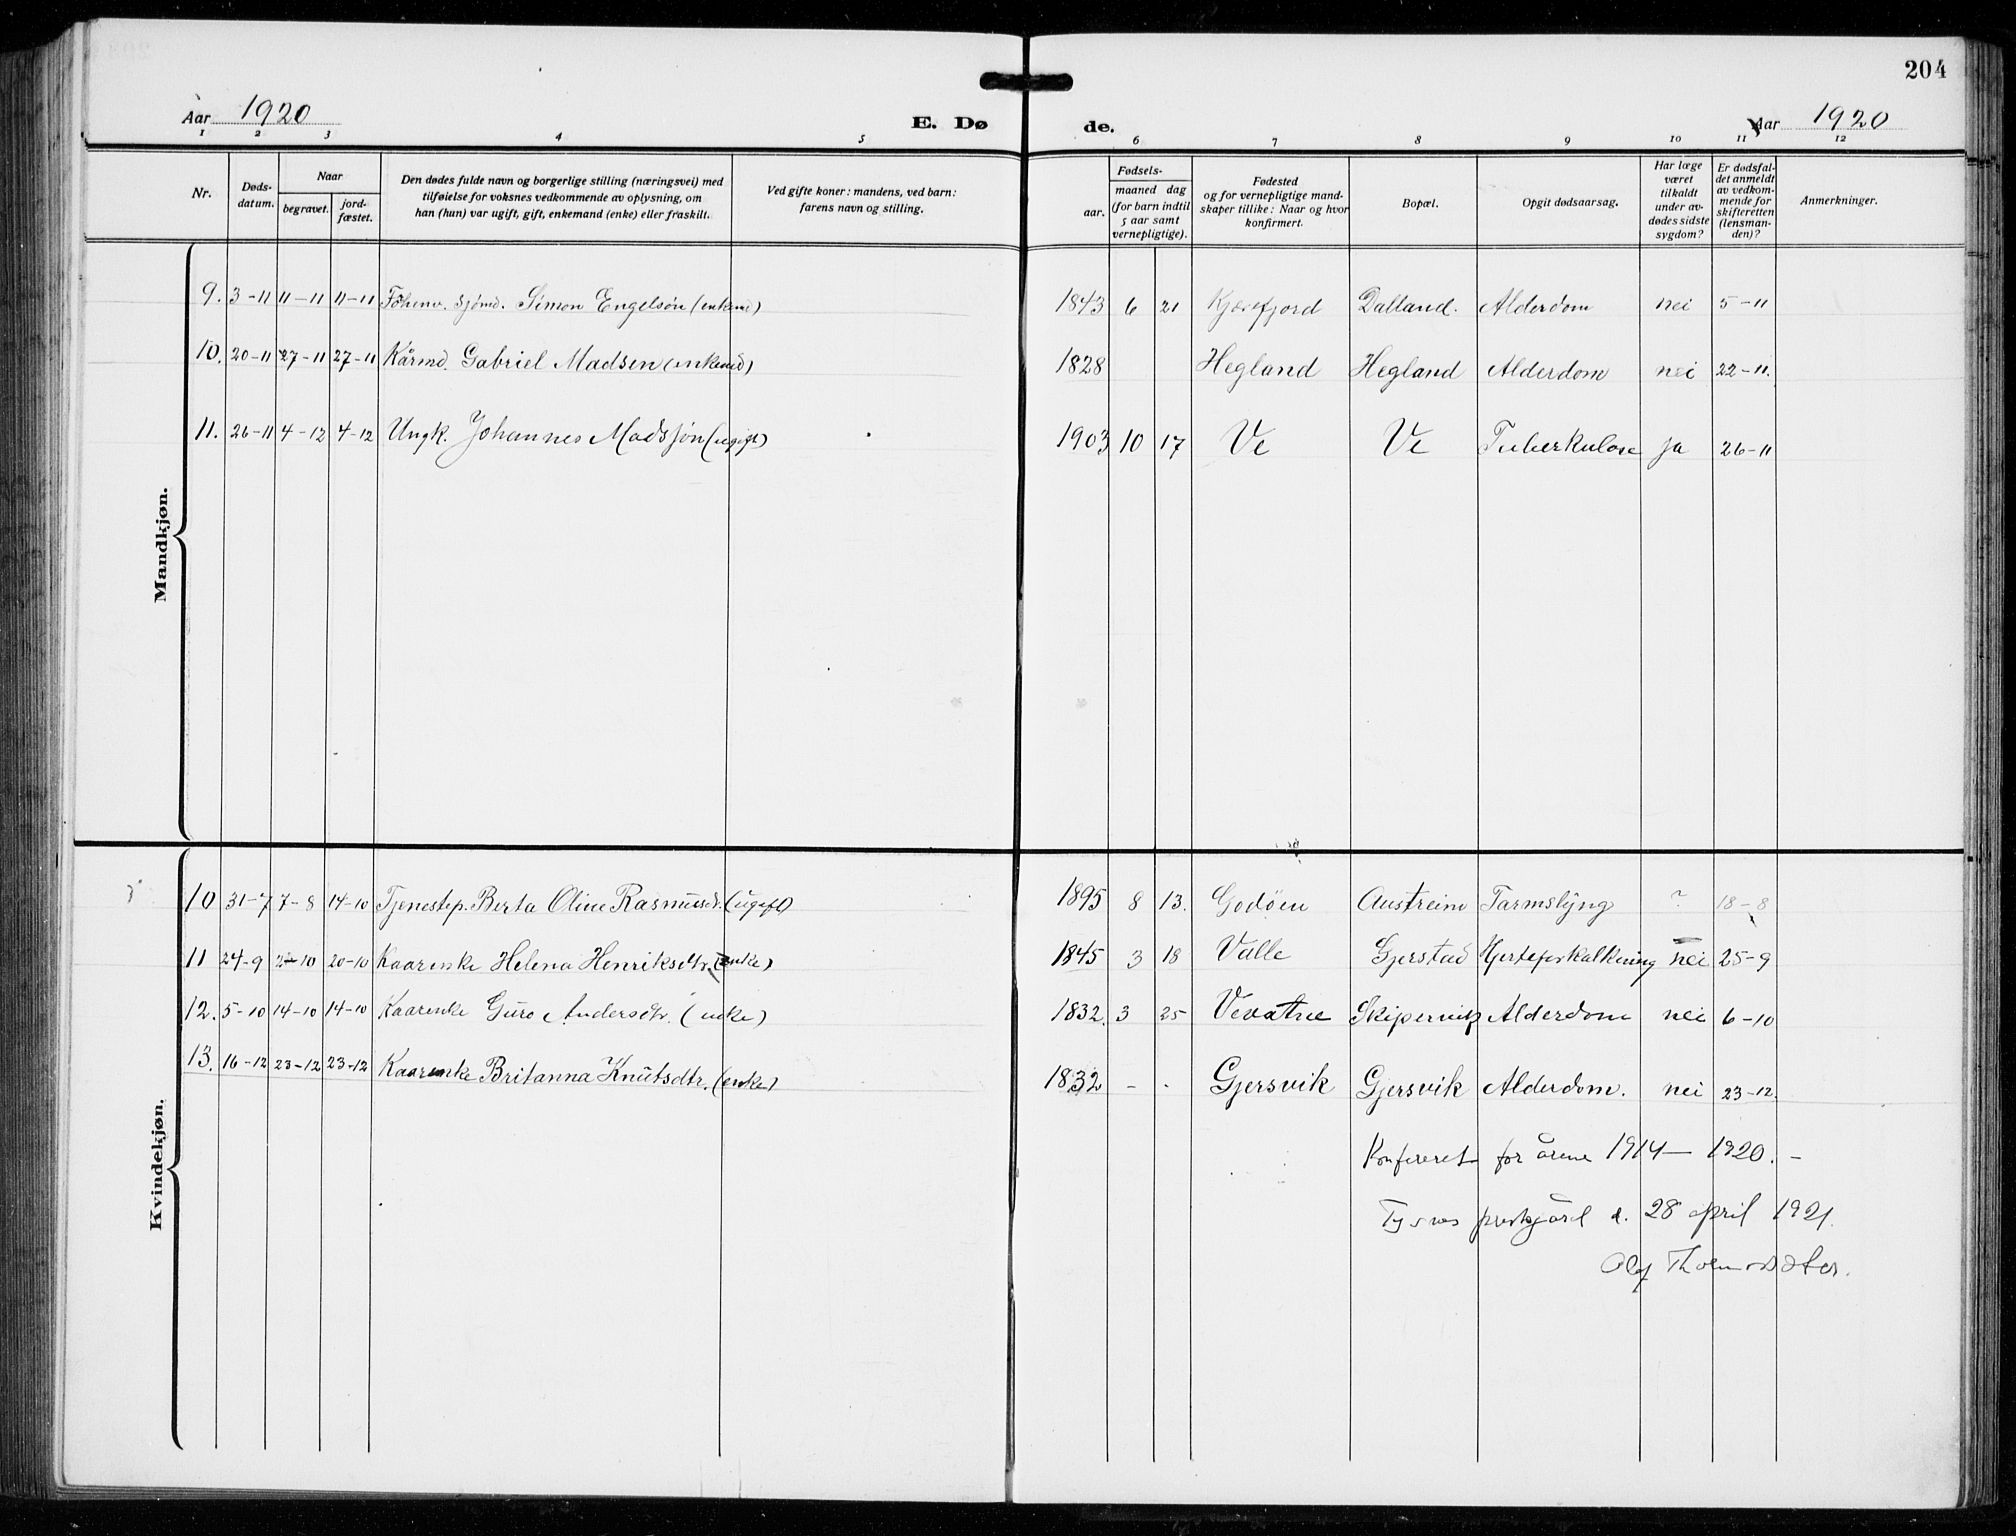 204
Aar 1920
E. Dø de.
Aar 1920
1 2 3 4 5 6 7 8 9 10 11 12
Nr.
Døds-
datum.
Naar
begravet.
jord-
fæstet.
Den dødes fulde navn og borgerlige stilling (næringsvei) med
tilføielse for voksnes vedkommende av oplysning, om
han (hun) var ugift, gift, enkemand (enke) eller fraskilt.
Ved gifte koner: mandens, ved barn:
farens navn og stilling.
Fødsels-
aar.
maaned dag
(for barn indtil
5 aar samt
vernepligtige).
Fødested
og for vernepligtige mand-
skaper tillike: Naar og hvor
konfirmert.
Bopæl.
Opgit dødsaarsag.
Har læge
været
tilkaldt
under av-
dødes sidste
sygdom?
Er dødsfal-
det anmeldt
av vedkom-
mende for
skifteretten
(lensman-
den)?
Anmerkninger.
Mandkjøn.
9. 3-11 11-11 11-11 Simon Engelsøn (enkem) 1843 6 21 Dalland. Alderdom nei 5-11
10. 20-11 27-11 27-11 Kårmd. Gabriel Madsen (enkemd) 1828 Hegland Hegland Alderdom nei 22-11.
11. 26-11 4-12 4-12 Ungk. Johannes Madssøn (ugift) 1903 10 17 Ve Ve Tuberkulose ja 26-11
Kvindekjøn.
10 31-7 7-8 14-10 Tjenestep. Berta Oline Rasmusd. (ugift) 1895 8 13. Godøen Austreim Tarmslyng ? 18-8
11 24-9 2-10 20-10 Kaarenke Helena Henriksdtr. (enke) 1845 3 18 Valle Gjerstad Hjerteforkalkning nei 25-9
12. 5-10 14-10 14-10 Kaarenke Guro Andersdtr. (enke) 1832. 3 25 Vevatne Skipervik Alderdom nei 6-10
13. 16-12 23-12 23-12 Kaarenke Britanna Knutsdtr. (enke) 1832 - - Gjersvik Gjersvik Alderdom. nei 23-12.
Konfereret for årene 1914-1920. -
Tysnes prestgård d. 28 april 1921.
Olaf